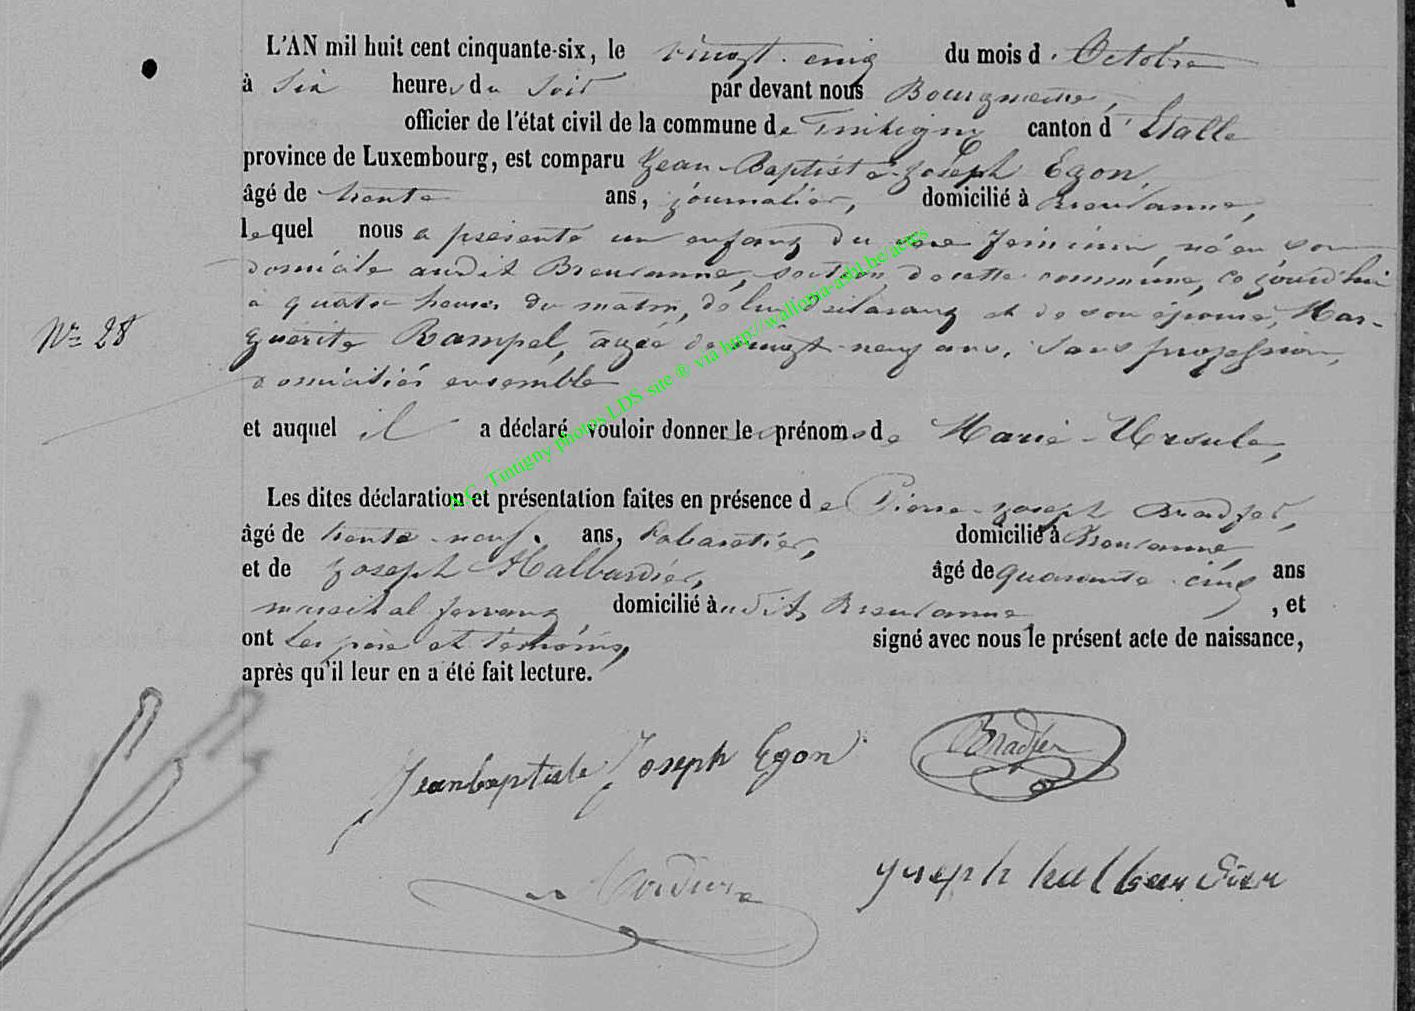 L'AN mil huit cent cinquante-six, le vingt-cinq du mois d'Octobre
à six heures du soir par devant nous Bourgmestre,
officier de l'état civil de la commune de Tintigny canton d'Etalle
province de Luxembourg, est comparu Jean-Baptiste-Joseph Egon,
âgé de trente ans, journalier, domicilié à Breuvanne,
lequel nous a présenté un enfant du sexe féminin, né en son
domicile audit Breuvanne, section de cette commune, ce jourd'hui
à quatre heures du matin, de lui Déclarant et de son épouse, Mar-
Nº 28
guerite Rampel, âgée de vingt-neuf ans, sans profession,
domiciliés ensemble
et auquel il a déclaré vouloir donner le prénoms de Marie-Ursule,
Les dites déclaration et présentation faites en présence de Pierre-Joseph Bradfer,
âgé de trente-neuf ans, Cabaretier, domicilié à Breuvanne
et de Joseph Halbardier, âgé de quarante-cinq ans
maréchal ferrant, domicilié audit Breuvanne, et
ont les père et témoins, signé avec nous le présent acte de naissance,
après qu'il leur en a été fait lecture.
Jeanbaptiste Joseph Egon Bradfer
Joseph halbardier
A.C. Tintigny photos LDS site ® via http://wallonia-asbl.be/actes